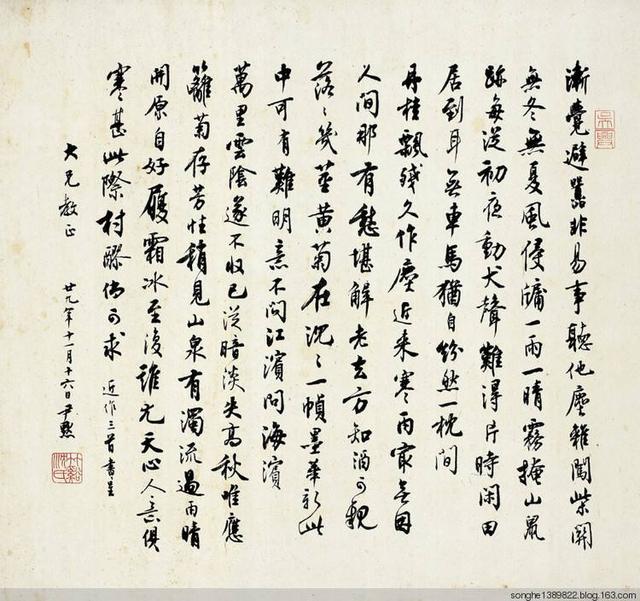 漸覺避囂非易事聽他塵雜闖柴關
無冬無夏風侵牖一雨一晴霧掩山鼠
跡每從初夜動犬聲難得片時閑田
居到耳無車馬猶自紛然一枕間
丹桂飄殘久作塵近來寒雨無因
人間那有愁堪解老去方知酒可親
落〻幾莖黃菊在沉〻一幀墨華新此
中可有難明意不問江濱問海濱
萬里雲陰遂不收已從暗淡失高秋唯應
籬菊存芳性稍見山泉有濁流過雨晴
開原自好履霜冰至復誰尤天心人意俱
寒甚此際村醪倘可求 近作三首書呈
大兄教正 廿九年十一月十六日尹默
竹谿沈氏
songhe1389822.blog.163.com